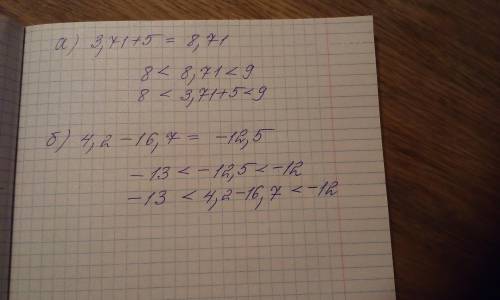 а) 3,71+5 = 8,71
8 < 8,71 < 9
8 < 3,71+5 < 9
б) 4,2 - 16,7 = -12,5
-13 < -12,5 < -12
-13 < 4,2 - 16,7 < -12